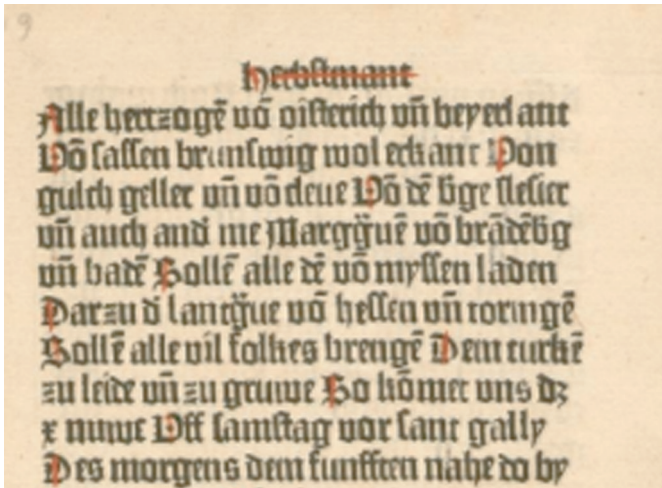 9
Herbstmant
Alle hertzogē vō oisterich vn̄ beyerlant
Vō sassen brunswig wol erkant Von
gulch geller vn̄ vō cleue Vō dē bge slesier
vn̄ auch and me Marggͣuē vō brādēbg
vn̄ badē Sollē alle dē vō myssen laden
Darzu d lantgͣue vō hessen vn̄ toringē
Sollē alle vil folkes brengē Dem turkē
zu leide vn̄ zu gruwe So kōmet vns dꝫ
x nuwe Vff samstag vor sant gally
Des morgens dem funfften nahe do by